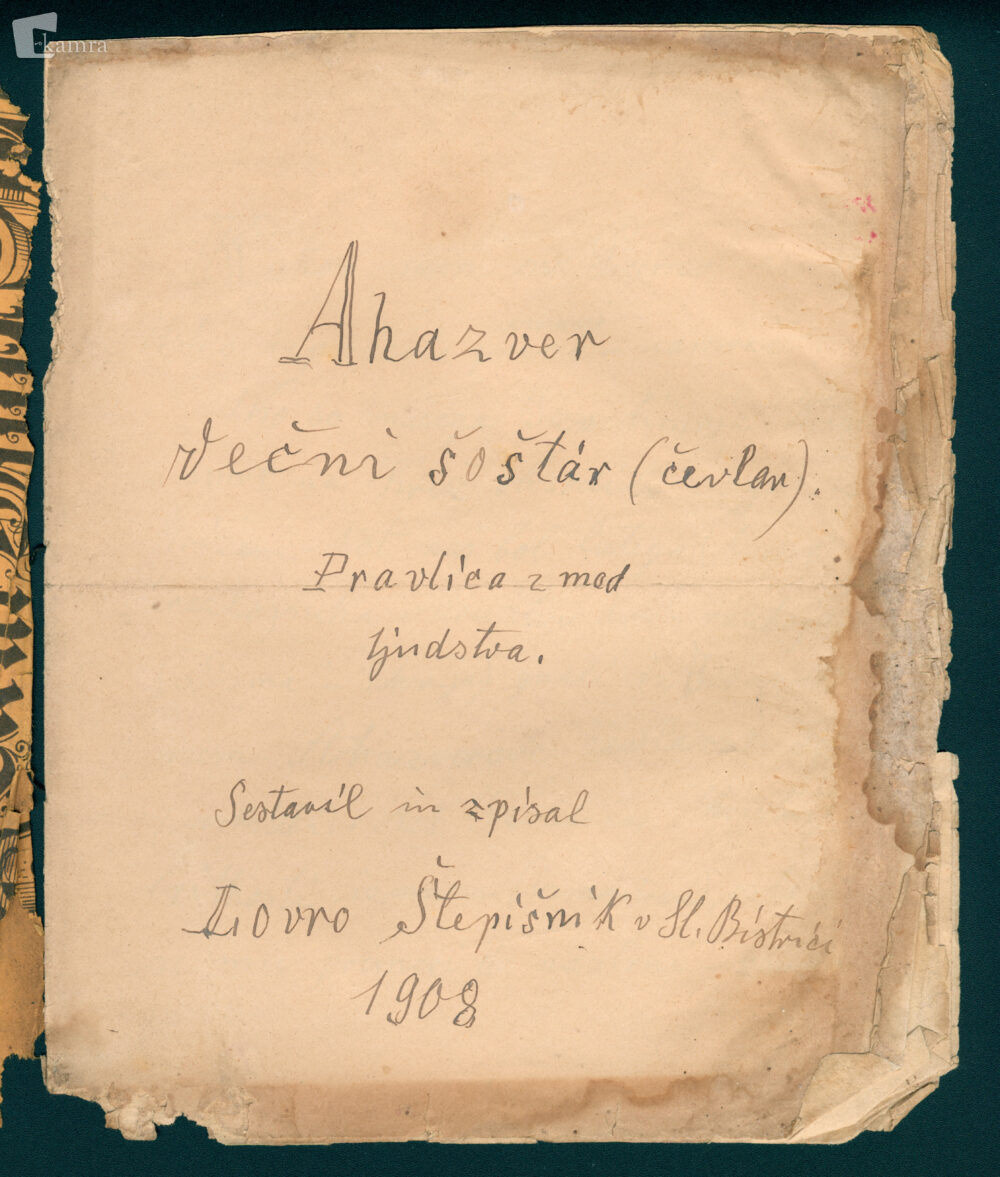 kamra
Ahazver
Večni šoštár (čevlar).
Pravlica z med
ljudstva.
Sestavil in zpisal
Lovro Štepišnik v Sl. Bistrici
1908